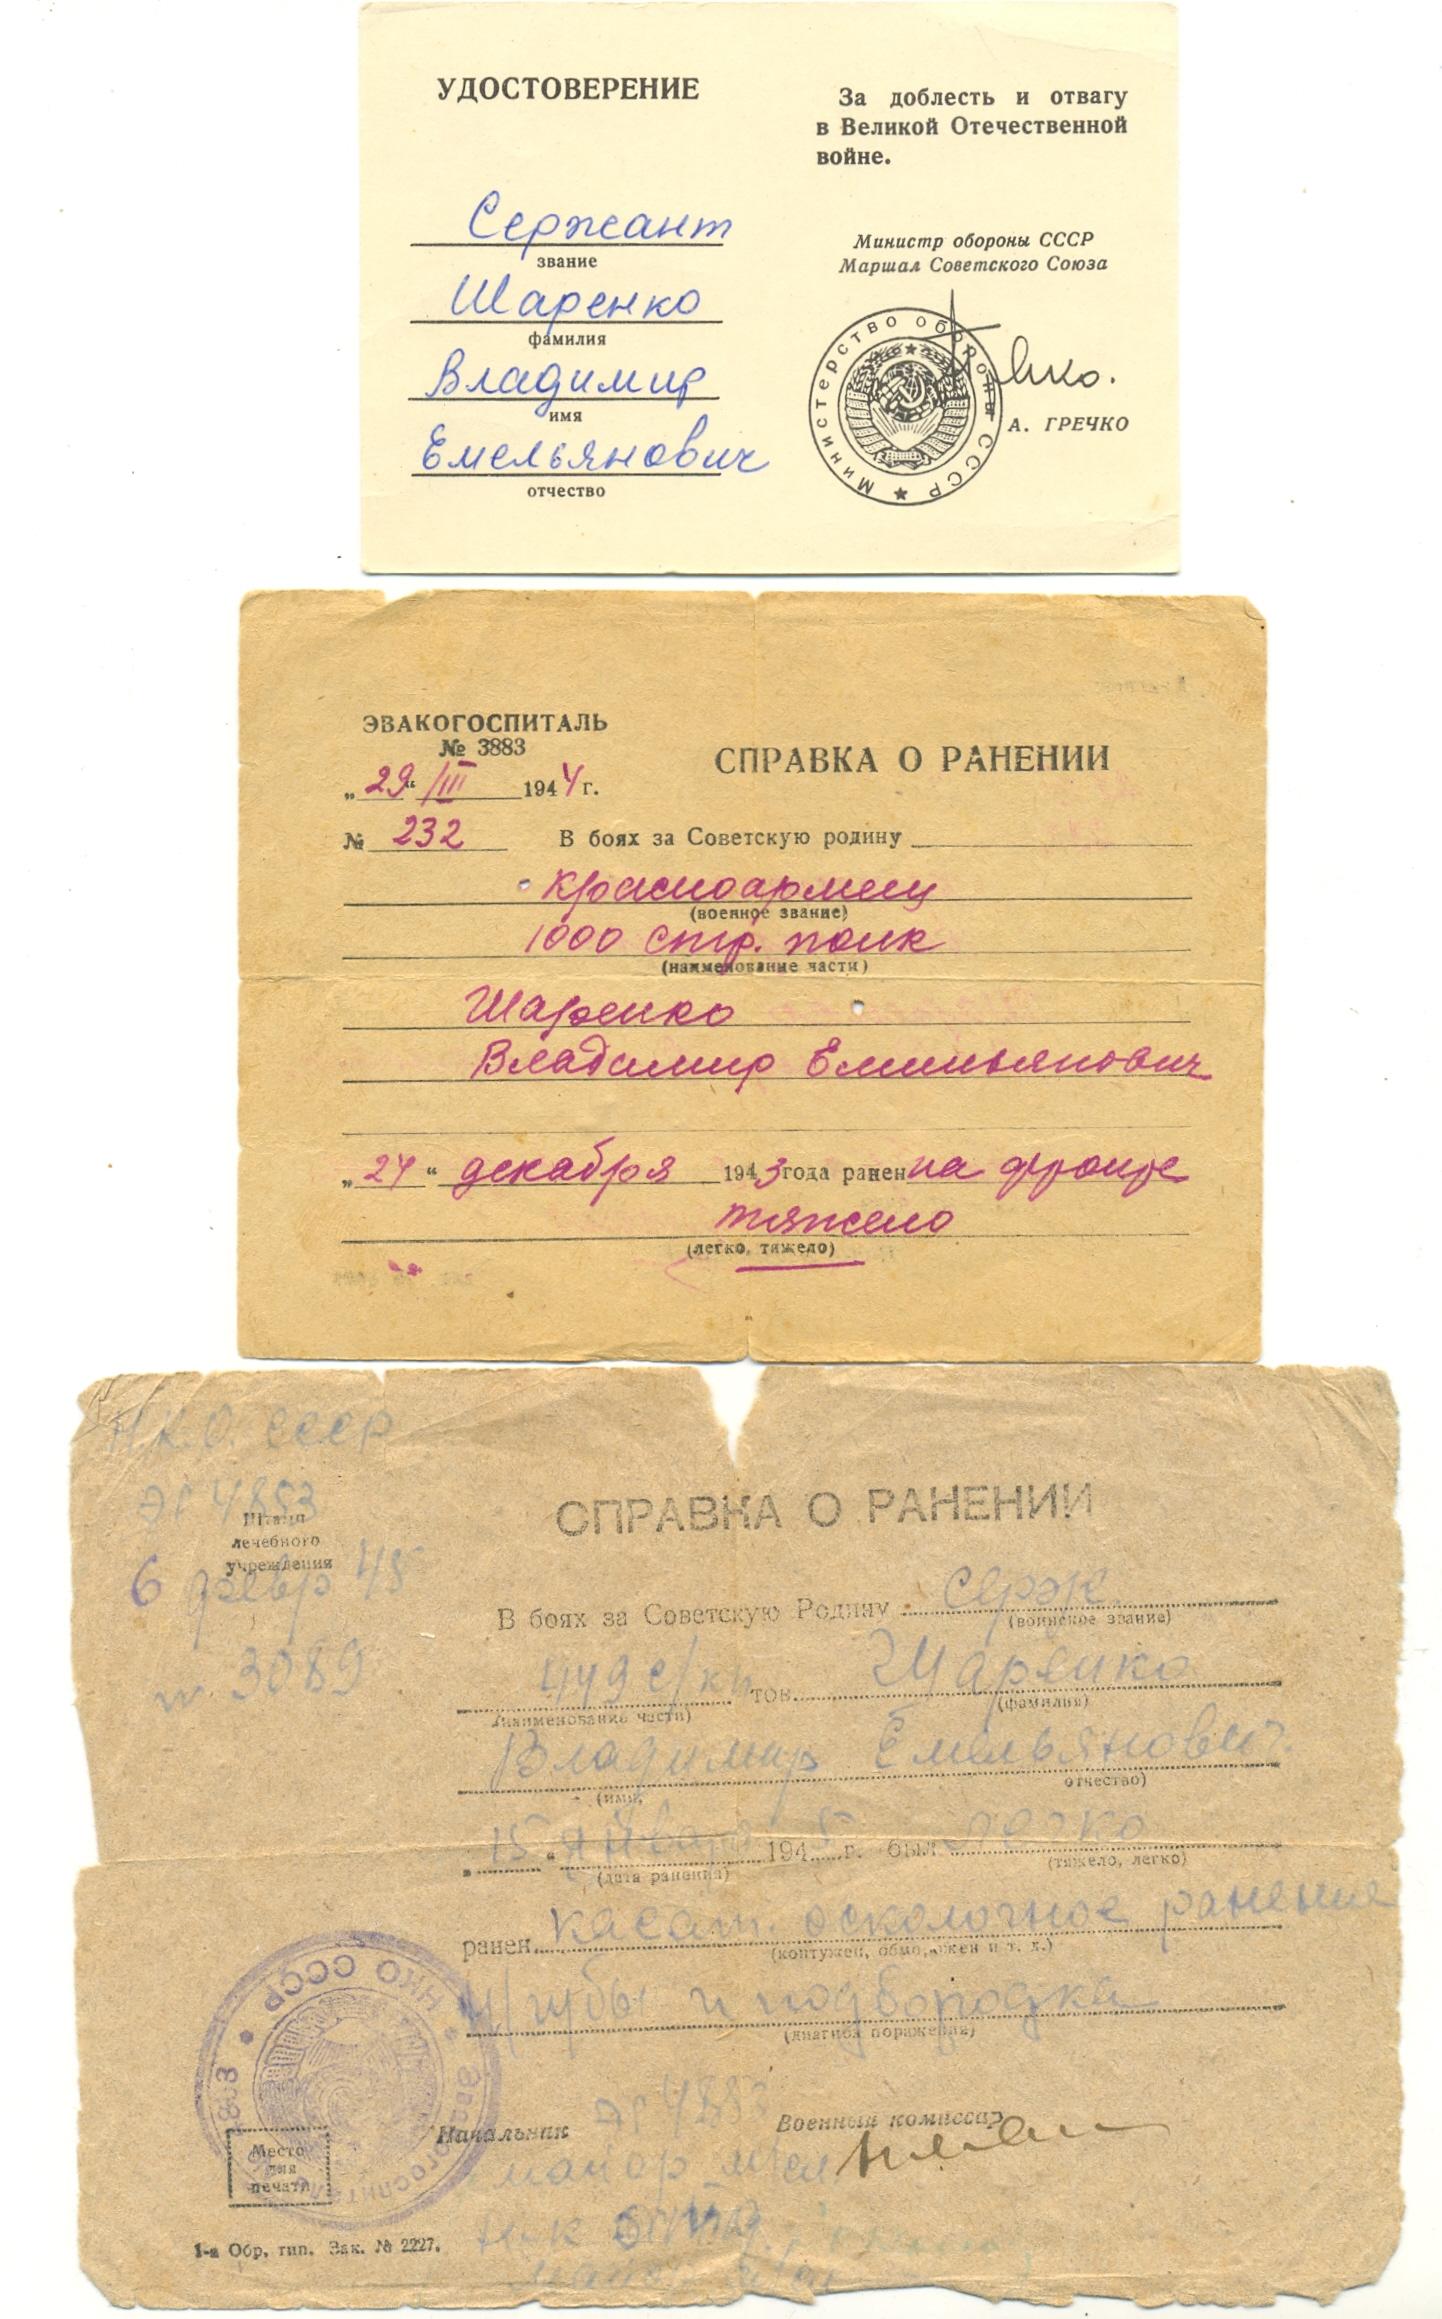 УДОСТОВЕРЕНИЕ
Сержант
звание
Шаренко
фамилия
Владимир
имя
Емельянович
отчество
За доблесть и отвагу
в Великой Отечественной
войне.
Министр обороны СССР
Маршал Советского Союза
Министерство обороны СССР
А. ГРЕЧКО
ЭВАКОГОСПИТАЛЬ
№ 3883
„29“ III 1944 г.
№ 232
СПРАВКА О РАНЕНИИ
В боях за Советскую родину
красноармеец
(военное звание)
1000 стр. полк
(наименование части)
Шаренко
Владимир Емельянович
„24“ декабря 1943 года ранен на фронте
тяжело
(легко, тяжело)
Н.К.О. СССР
ЭГ 4853
Штамп
лечебного
учреждения
6 февр 45
№ 3089
СПРАВКА О РАНЕНИИ
В боях за Советскую Родину серж.
(воинское звание)
449 с/кп тов. Шаренко
(наименование части) (фамилия)
Владимир Емельянович.
(имя, отчество)
„15“ января 1945 г. был легко
(дата ранения) (тяжело, легко)
ранен касат. осколочное ранение
(контужен, обморожен и т. д.)
н/губы и подбородка
(диагноз поражения)
НКО СССР
Место
для
печати
Начальник ЭГ 4853
Военный комиссар
майор м/сл
1-я Обр. тип. Зак. № 2227.